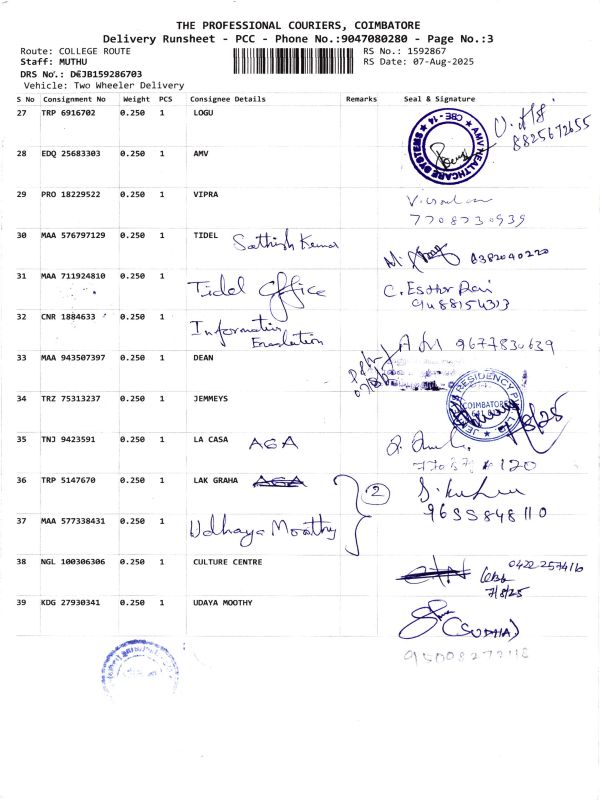 THE PROFESSIONAL COURIERS, COIMBATORE
Delivery Runsheet - PCC - Phone No.:9047080280 - Page No.:3
Route: COLLEGE ROUTE RS No.: 1592867
Staff: MUTHU RS Date: 07-Aug-2025
DRS No.: DEJB159286703
Vehicle: Two Wheeler Delivery
S No Consignment No Weight PCS Consignee Details Remarks Seal & Signature
27 TRP 6916702 0.250 1 LOGU
AMV HEALTHCARE SYSTEMS CBE - 14
8825672655
28 EDQ 25683303 0.250 1 AMV
29 PRO 18229522 0.250 1 VIPRA
7708730939
30 MAA 576797129 0.250 1 TIDEL Sathish Kumar
8382040220
31 MAA 711924810 0.250 1 Tidel Office C. Esther Rani
9488154313
32 CNR 1884633 0.250 1 Information
9677830639
33 MAA 943507397 0.250 1 DEAN
34 TRZ 75313237 0.250 1 JEMMEYS
RESIDENCY PVT
COIMBATORE
7/8/25
35 TNJ 9423591 0.250 1 LA CASA AGA
120
36 TRP 5147670 0.250 1 LAK GRAHA AGA 2
9655848110
37 MAA 577338431 0.250 1 Udhaya Moorthy
38 NGL 100306306 0.250 1 CULTURE CENTRE
0422 257416
7/8/25
39 KDG 27930341 0.250 1 UDAYA MOOTHY
(SUDHA)